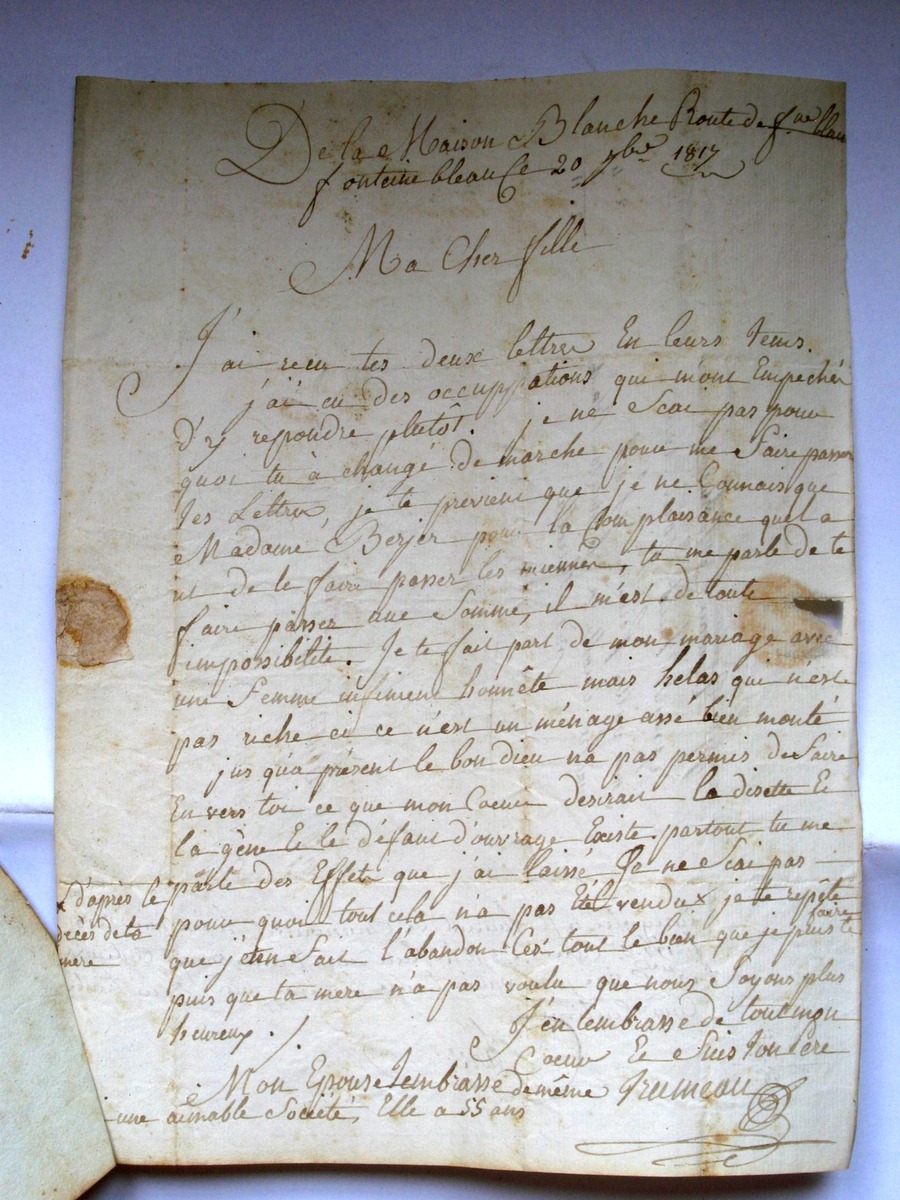 De la Maison Blanche Route de
fonteine bleau Ce 20 7bre 1817
Ma Cher fille
J'ai recu tes deux lettres En leurs tems.
j'ai eu des occuppations qui m'ont Empechér
d'y repondre plutôt. je ne Scai pas pour
quoi tu à changé De marche pour me faire passer
tes Lettres, je te previens que je ne Connais que
Madame Berjer pour la Complaisance quel a
ut de te faire passer les miennes, tu me parle de te
faire passer une Somme, il m'est de toute
impossibilité. Je te fait part de mon mariage avec
une femme infiniment honnête mais helas qui n'est
pas riche ci ce n'est un ménage assé bien monté
jus qu'a présent le bon dieu n'a pas permis de faire
En vers toi ce que mon Coeur desirait la disette Et
la gêne Et le défaut d'ouvrage Existe partout tu me
parle des Effets que j'ai laissé Je ne Scai pas
pour quoi tout cela n'a pas Eté vendu x, je te repète
x d'après le
décès de ta
mere
que j'en fait l'abandon C'es tout le bien que je puis te faire
puis que ta mere n'a pas voulu que nous Soyons plus
heureux.
J'en t'embrasse de tout mon
Coeur Et Suis ton Pere
Mon Epouse t'embrasse de même
une aimable Société, Elle a 55 ans